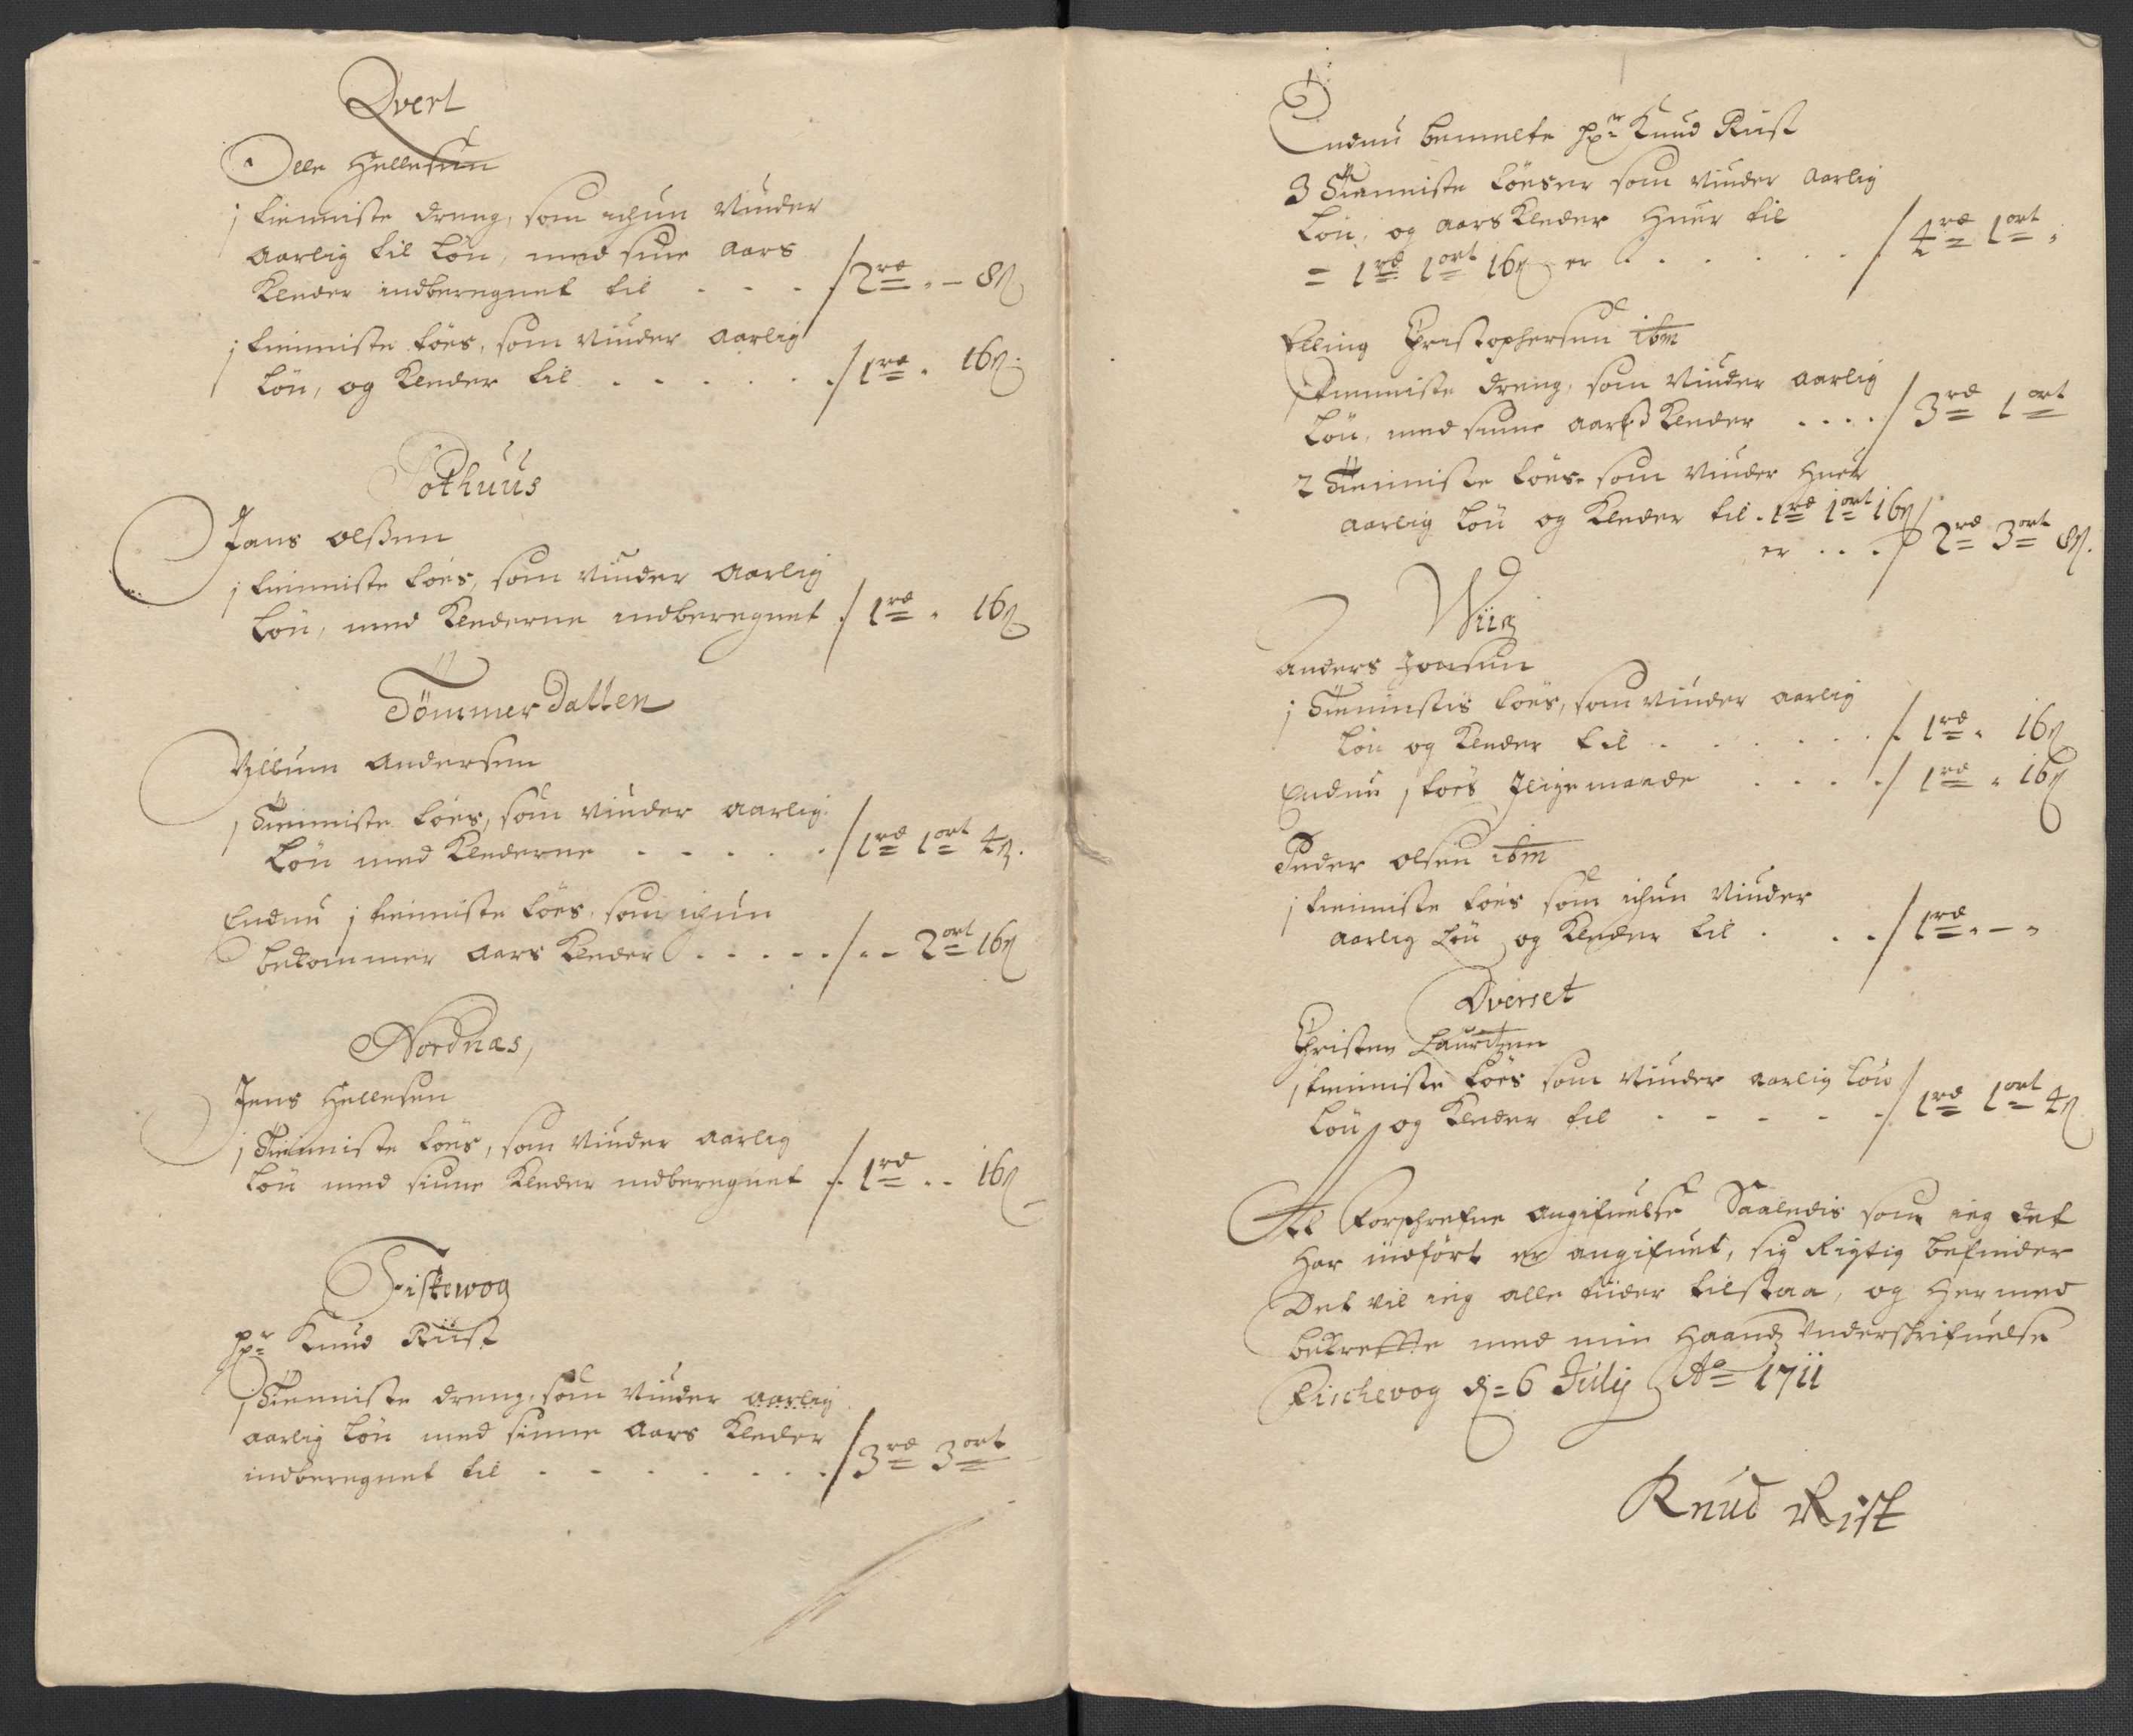 Qvert
Olle Hellesen
1 tienniste dreng, som ichun Vinder
aarlig til Løn, med sine aars
Kleder indberegnet til . . . 2rd - 8ß
1 tienniste töes, som vinder aarlig
Løn, og Kleder til . . . . . 1rd - 16ß
Pothuus
Jans olßen
1 tienniste töes, som vinder aarlig
Løn, med Klederne indberegnet . 1rd - 16ß
Tömmerdallen
Villum Andersen
1 Tienniste töes, som vinder aarlig
Løn med Klederne . . . . . 1rd 1ort 4ß.
Endnu 1 tienniste töes, som ichun
bekommer aars Kleder . . . . . - 2ort 16ß
Nordnæs,
Jens Hellesen
1 Tienniste töes, som vinder aarlig
Løn med sinne Kleder indberegnet . 1rd - 16ß
Fiskewog
Hr Knud Riist
1 Tienniste dreng, som vinder aarlig
aarlig Løn med sinne aars Kleder
indberegnet til . . . . . . . 3rd 3ort
Endnu bemelte Hr Knud Riist
3 Tienniste töeser som vinder aarlig
Løn, og aars Kleder Huer til
= 1rd 1ort 16ß er . . . . . . 4rd 1ort -
Elling Christophersen ibm
1 tienniste dreng, som vinder aarlig
Løn, med sinne aarß Kleder . . . . 3rd 1ort
2 Tienniste töes som vinder Huer
aarlig Løn og Kleder til . 1rd 1ort 16ß
er . . . 2rd 3ort 8ß.
Wiig
Anders Joensen
1 Tiennistis töes, som vinder aarlig
Løn og Kleder til . . . . . . 1rd - 16ß
Endnu 1 töes Jligemaade . . . . 1rd - 16ß
Peder olsen ibm
1 tienniste töes som ichun vinder
aarlig Løn og Kleder til . . . 1rd - - -
Qverset
Christen Lauritzen
1 tienniste töes som vinder aarlig Løn
Løn og Kleder til . . . . . 1rd 1ort 4ß
At Forschrefne angifuelse Saaledis som ieg det
Har indført er angifuet, sig Rigtig befinder
Det vil ieg alle tiider tilstaa, og Hermed
bekreffte med min Haandz Underskrifuelse
Fischevog d= 6 Julij Ao 1711
Knud Rist